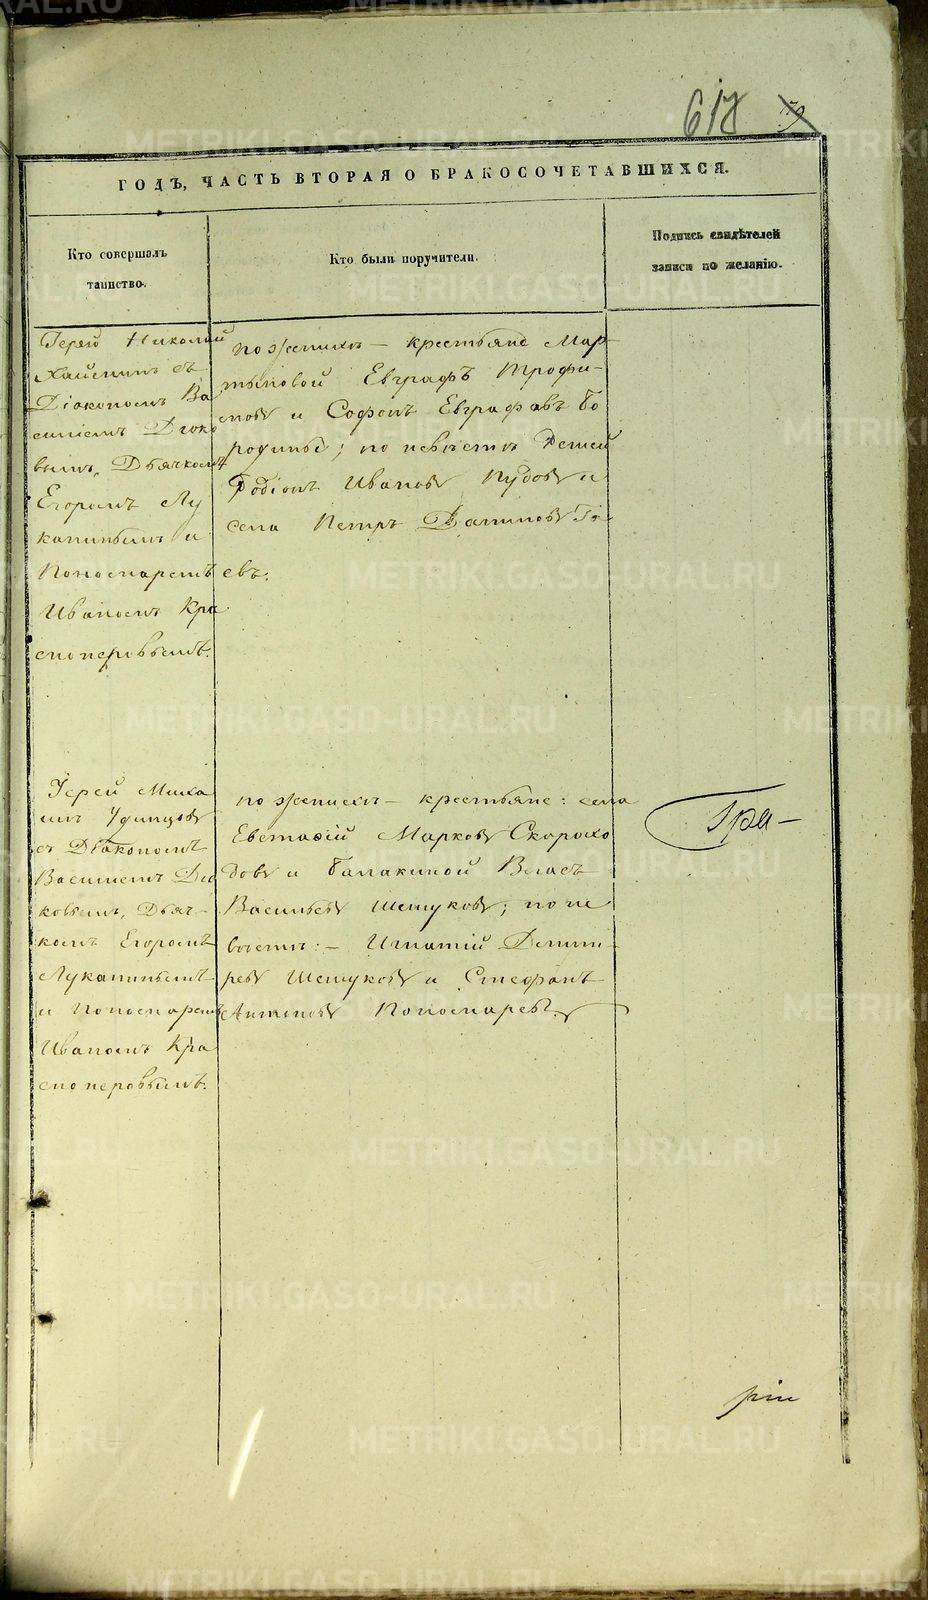 618
ГОДЪ, ЧАСТЬ ВТОРАЯ О БРАКОСОЧЕТАВШИХСЯ.
Кто совершалъ
таинство.
Кто были поручители.
Подпись свидѣтелей
записи по желанію.
Іерей Николай
съ
Діакономъ Ва
силіемъ Дико
вымъ, Дьячкомъ
Егоромъ Лу
канинымъ и
Пономаремъ
Иваномъ Кра
сноперовымъ.
по женихѣ – крестьяне Мар
тыновой Евграфъ Трофи-
мовъ и Софонъ Евграфовъ Бо
родины; по невѣстѣ
Родіонъ Ивановъ Пудовъ и
села Петръ
евъ.
Іерей Миха
илъ Удинцовъ
съ Діакономъ
Василіемъ Ди
ковымъ, Дьяч-
комъ Егоромъ
Луканинымъ
и Пономаремъ
Иваномъ Кра
сноперовымъ.
по женихѣ – крестьяне: села
Евстафій Марковъ Скорохо
довъ и Балакиной Власъ
Васильевъ Шешуковъ; по не
вѣстѣ: – Игнатій Дмит-
ревъ Шешуковъ и Стефанъ
Антиповъ Пономаревъ.
Гри-
рій
METRIKI.GASO-URAL.RU